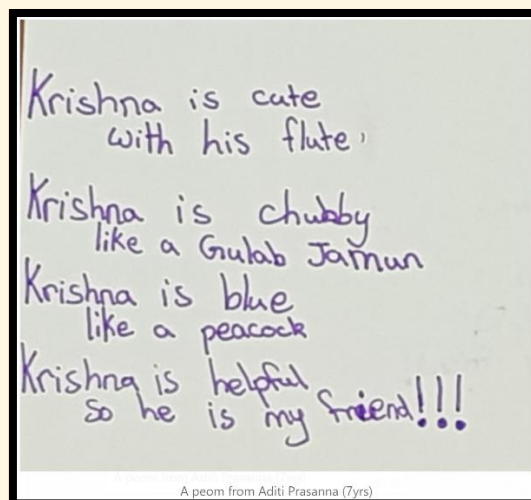 Krishna is cute
with his flute,
Krishna is chubby
like a Gulab Jamun
Krishna is blue
like a peacock
Krishna is helpful
so he is my friend!!!
A peom from Aditi Prasanna (7yrs)